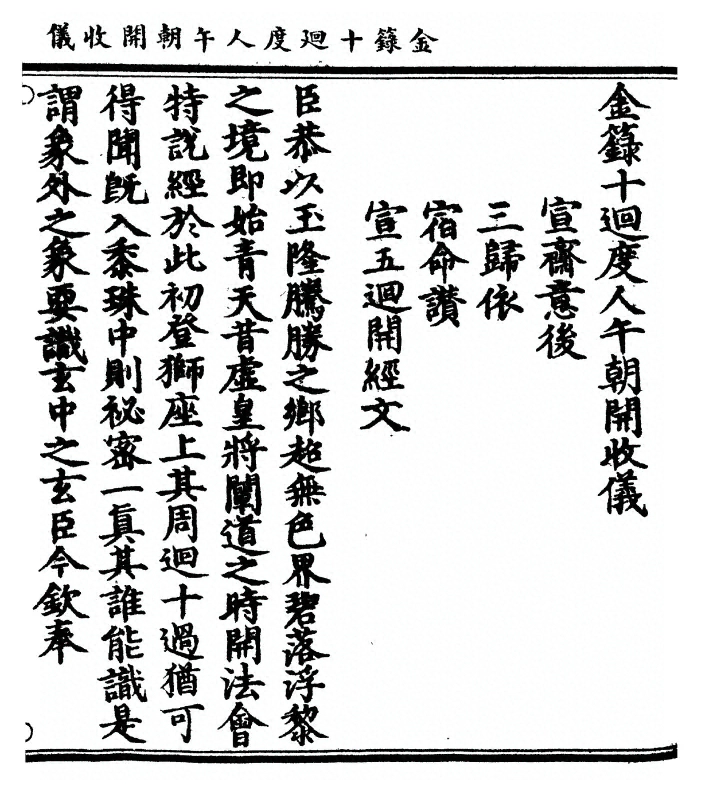 金籙十廻度人午朝開收儀
金籙十迴度人午朝開收儀
宣齋意後
三歸依
宿命讚
宣五迴開經文
臣恭以玉隆騰勝之鄉超無色界碧落浮黎
之境即始青天昔虛皇將闡道之時開法會
特說經於此初登獅座上其周迴十過猶可
得聞旣入黍珠中則祕密一眞其誰能識是
謂象外之象要識玄中之玄臣今欽奉